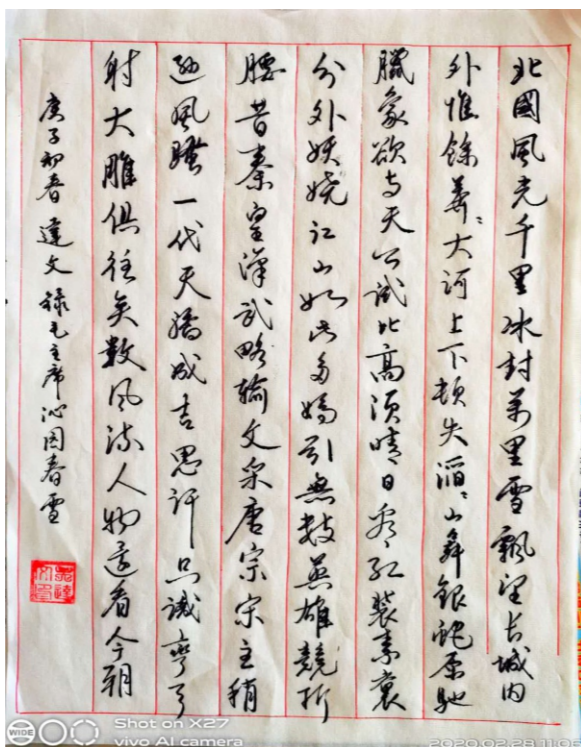 北國風光千里冰封萬里雪飄望長城内
外惟餘莽〻大河上下頓失滔〻山舞銀蛇原馳
臘象欲与天公試比高須晴日看紅裝素裹
分外妖嬈江山如此多嬌引無数英雄競折
腰昔秦皇漢武略輸文采唐宗宋主稍
遜風騷一代天驕成吉思汗只識彎弓
射大雕俱往矣数風流人物還看今朝
庚子初春達文録毛主席沁园春雪
Shot on X27
WIDE
vivo AI camera
2020.02.28 11:02